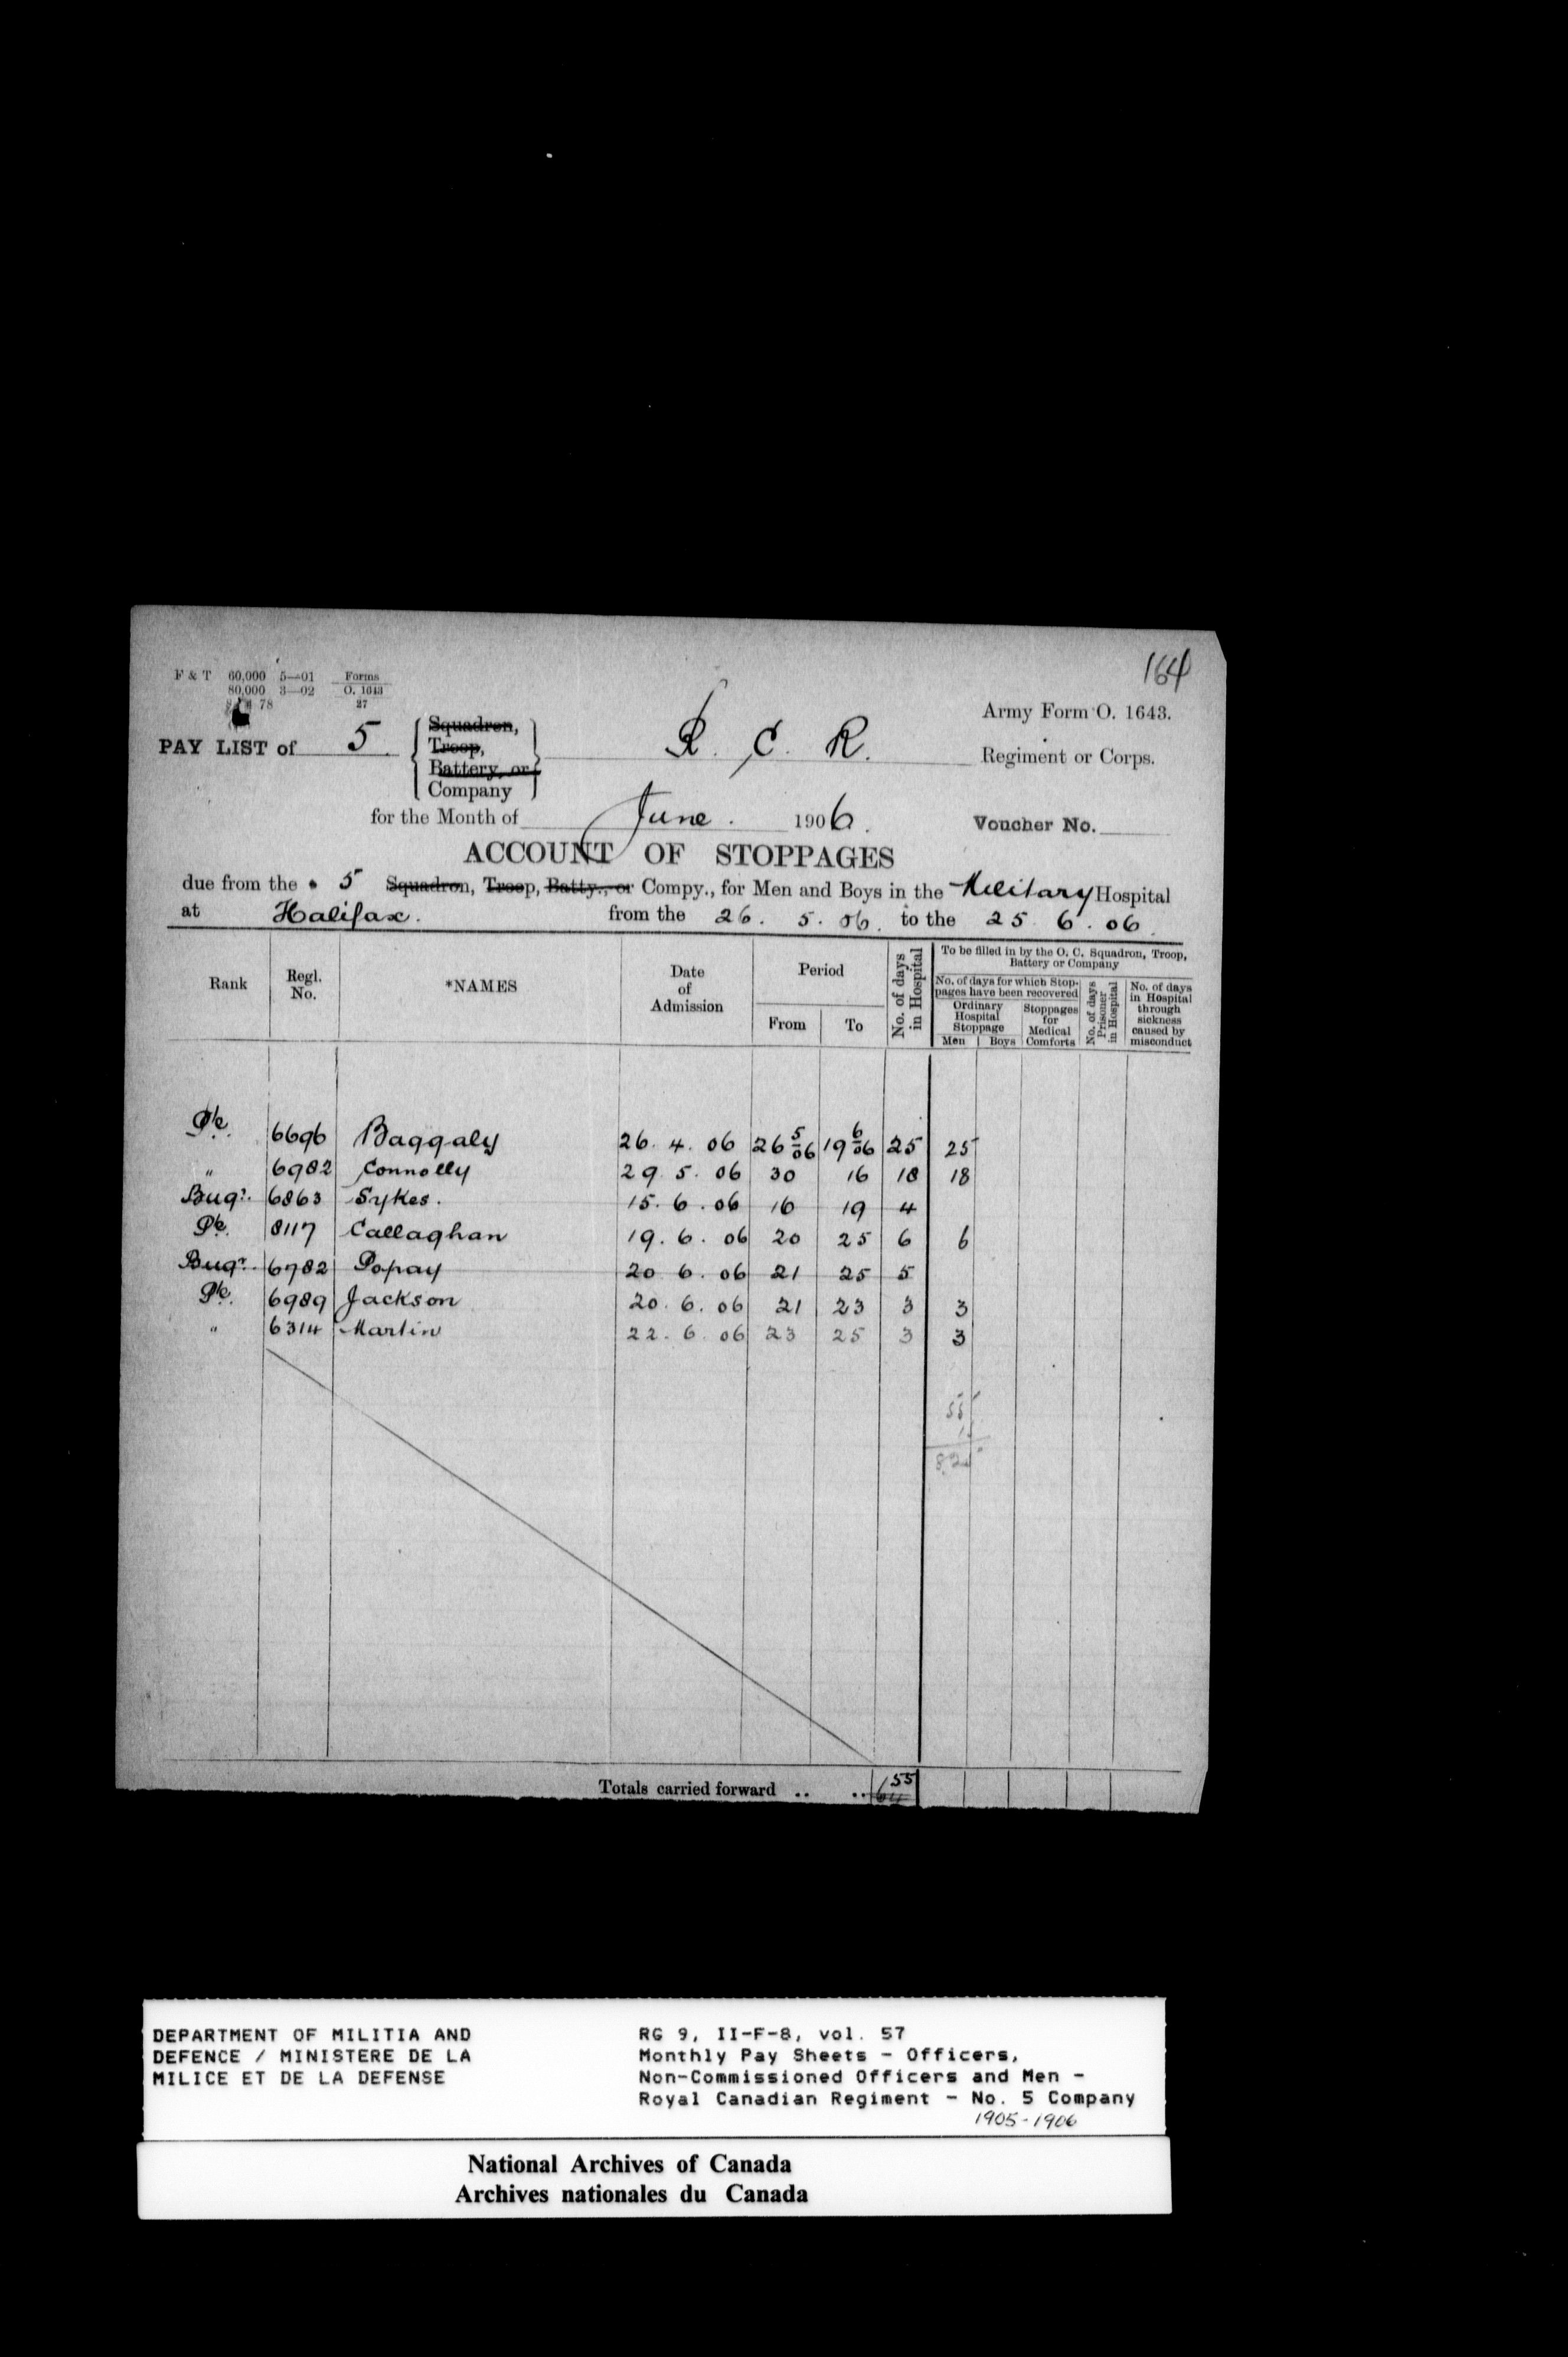 164
F & T 60,000 5—01 Forms
80,000 3—02 O. 1643
78 27
Army Form O. 1643.
PAY LIST of 5 Squadron, Troop, Battery, or Company R. C. R. Regiment or Corps.
for the Month of June. 1906. Voucher No.
ACCOUNT OF STOPPAGES
due from the 5 Squadron, Troop, Batty., or Compy., for Men and Boys in the Military Hospital
at Halifax. from the 26. 5. 06. to the 25. 6. 06.
Rank Regl. No. *NAMES Date of Admission Period From To No. of days in Hospital To be filled in by the O. C. Squadron, Troop, Battery or Company
No. of days for which Stoppages have been recovered Ordinary Hospital Stoppage Men Boys Stoppages for Medical Comforts No. of days Prisoner in Hospital No. of days in Hospital through sickness caused by misconduct
Pte. 6696 Baggaly 26. 4. 06 26 5/06 19 6/06 25 25
" 6982 Connolly 29. 5. 06 30 16 18 18
Bugr. 6863 Sykes. 15. 6. 06 16 19 4
Pte. 8117 Callaghan 19. 6. 06 20 25 6 6
Bugr. 6782 Popay 20 6. 06 21 25 5
Pte. 6989 Jackson 20. 6. 06 21 23 3 3
" 6314 Martin 22. 6. 06 23 25 3 3
55
Totals carried forward .. .. 64 55
DEPARTMENT OF MILITIA AND
DEFENCE / MINISTERE DE LA
MILICE ET DE LA DEFENSE
RG 9, II-F-8, vol. 57
Monthly Pay Sheets - Officers,
Non-Commissioned Officers and Men -
Royal Canadian Regiment - No. 5 Company
1905-1906
National Archives of Canada
Archives nationales du Canada